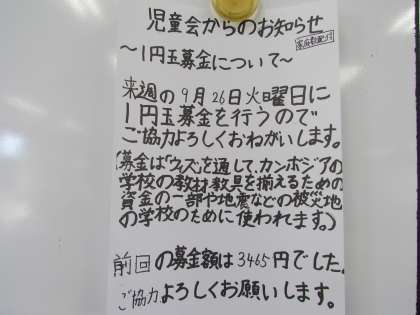 児童会からのお知らせ
家庭数配付
～1円玉募金について～
来週の9月26日火曜日に
1円玉募金を行うので
ご協力よろしくおねがいします。
(募金は「ウィズ」を通して、カンボジアの
学校の教材教具を揃えるための
資金の一部や地震などの被災地
の学校のために使われます。)
前回の募金額は3465円でした。
ご協力よろしくお願いします。